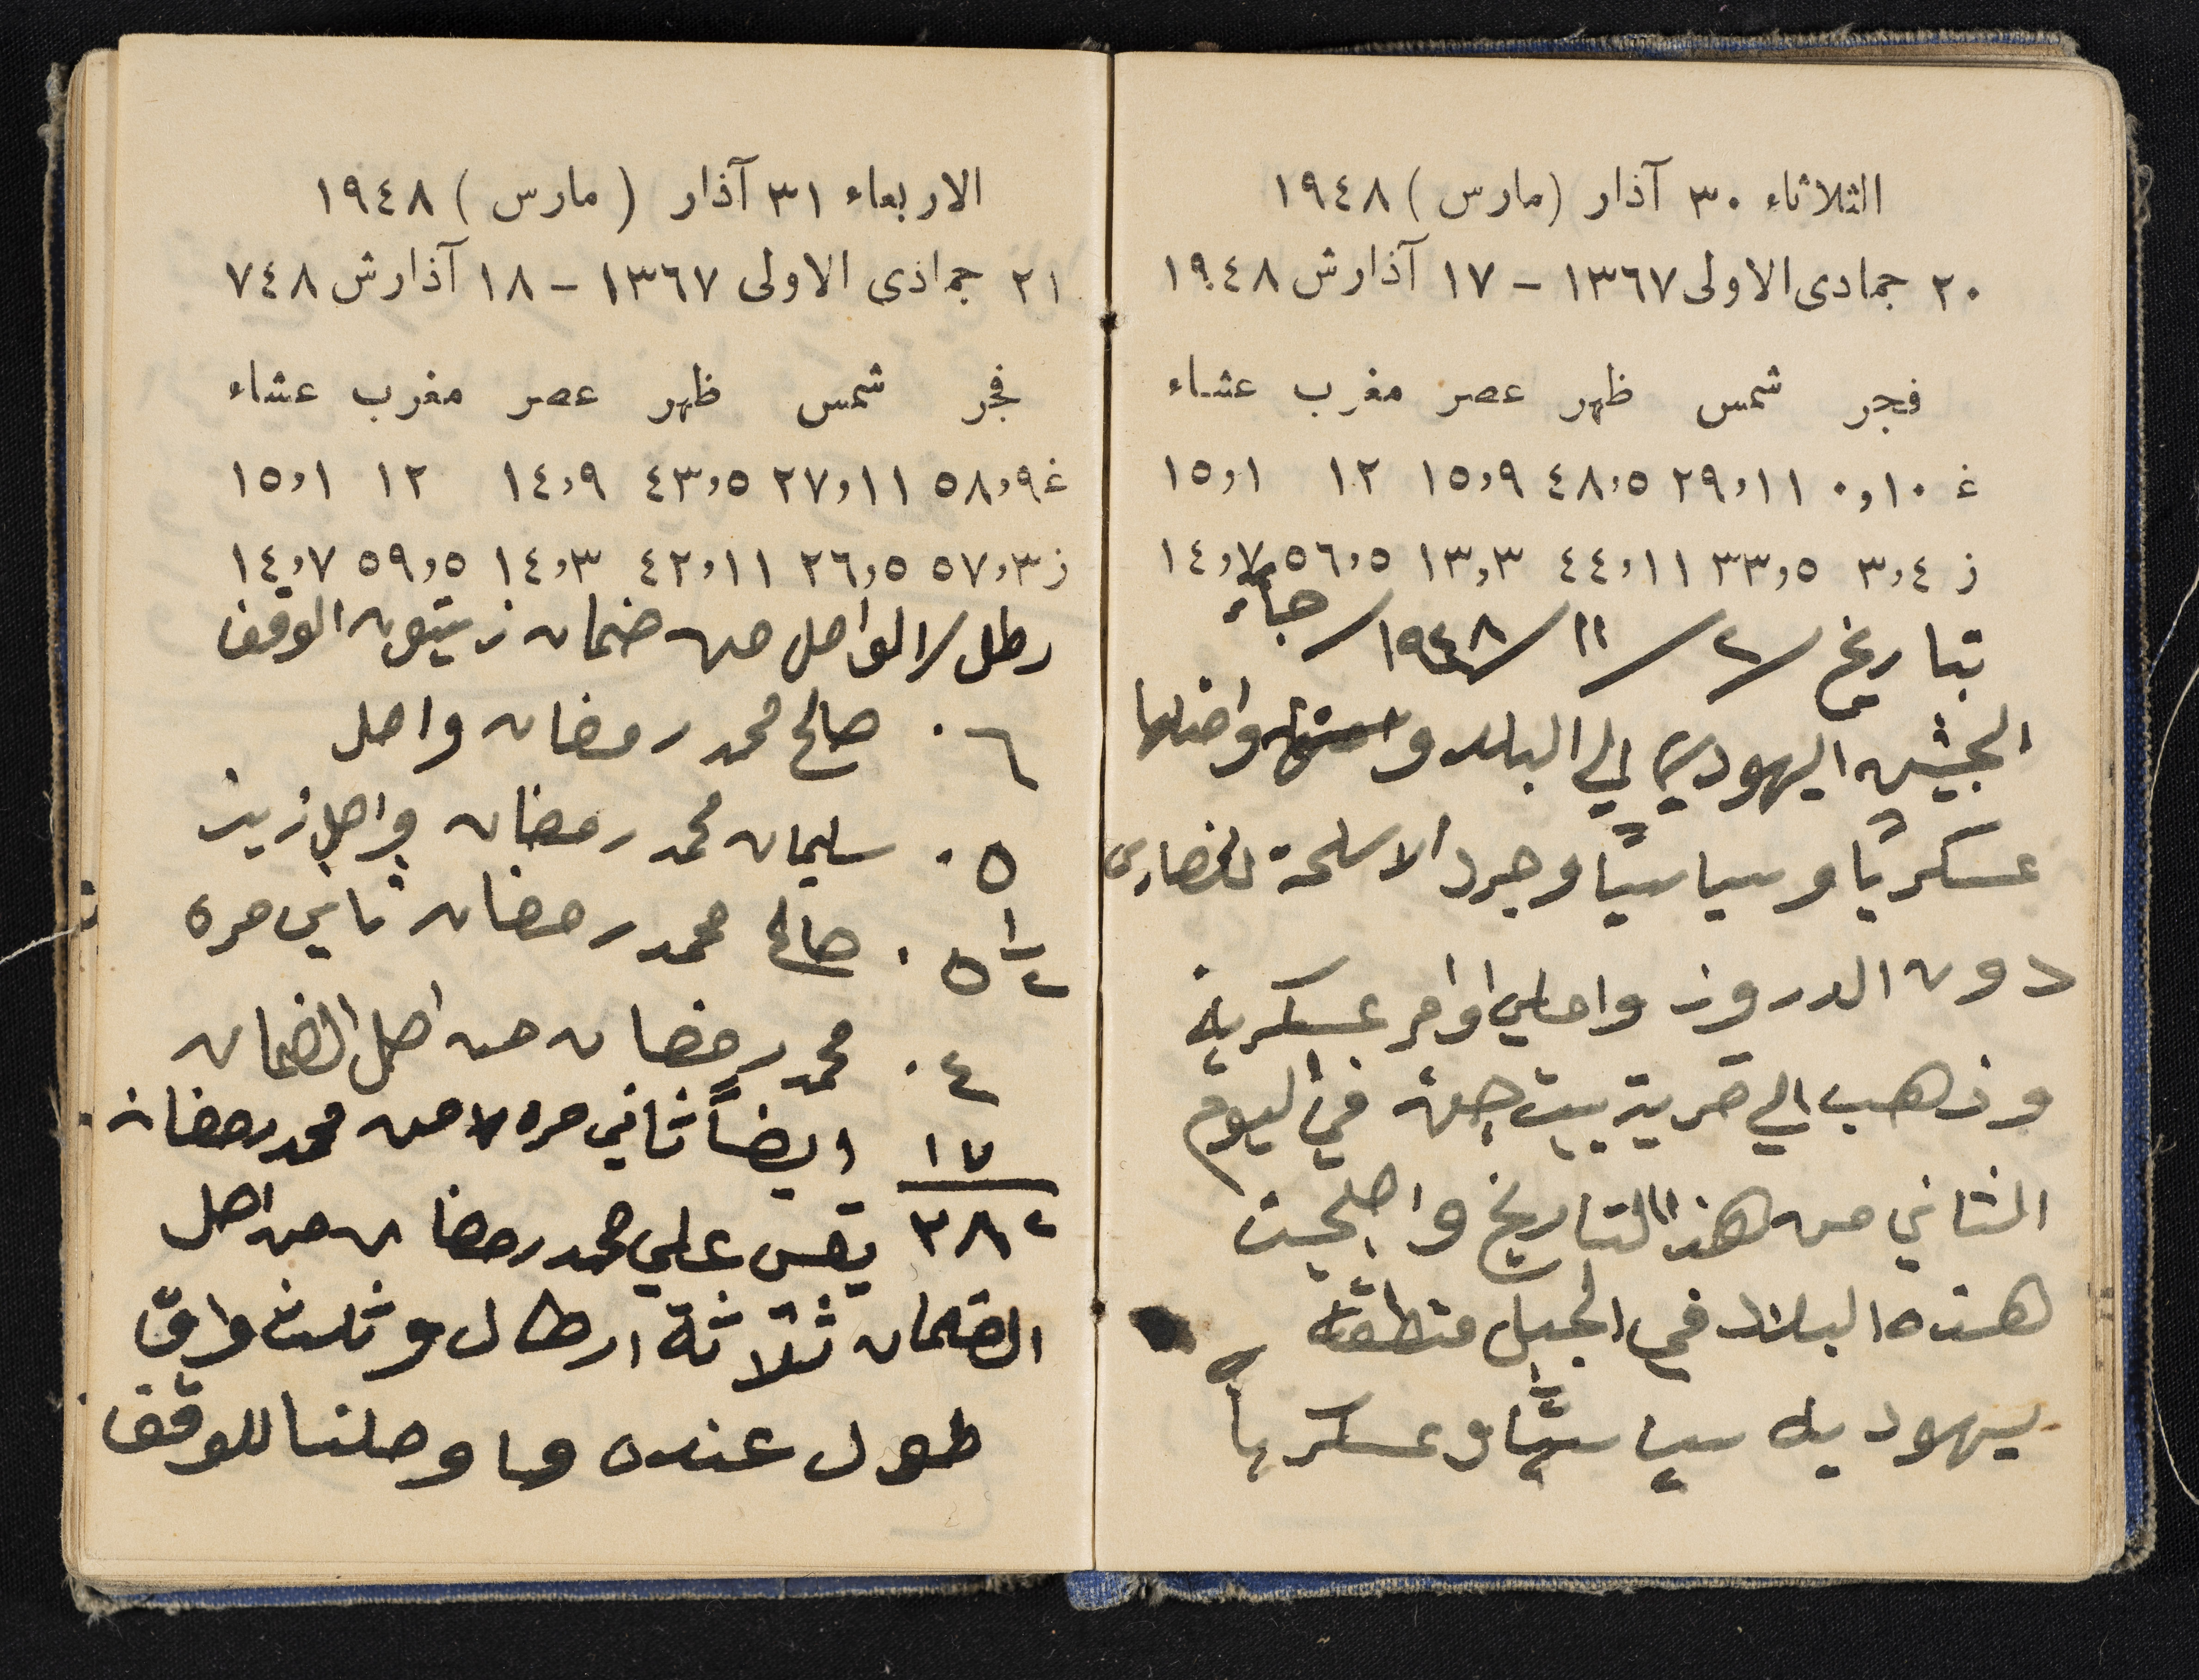 الثلاثاء ٣٠ آذار (مارس) ١٩٤٨
٢٠ جمادى الاولى ١٣٦٧ - ١٧ آذارش ١٩٤٨
فجر شمس ظهر عصر مغرب عشاء
غ ١٠,٠ ٢٩,١١ ٤٨,٥ ١٥,٩ ١٢ ١٥,١
ز ٣,٤ ٣٣,٥ ٤٤,١١ ١٣,٣ ٥٦,٥ ١٤,٧
بتاريخ ٢/١١/١٩٤٨/ جاء
الجيش اليهودي الى البلد واحتلها
عسكريًا وسياسيًا وجرد الاسلحة للنصارى
دون الدروز واعطي اوامر عسكرية
وذهب الي قرية بيت جن في اليوم
الثاني من هذا التاريخ واصبحت
هذه البلاد في الجبل منطقة
يهوديه سياسيًا وعسكرياً
الاربعاء ٣١ آذار (مارس) ١٩٤٨
٢١ جماذى الاولى ١٣٦٧ - ١٨ آذارش ٧٤٨
فجر شمس ظهر عصر مغرب عشاء
غ ٥٨,٩ ٢٧,١١ ٤٣,٥ ١٤,٩ ١٢ ١٥,١
ز ٥٧,٣ ٢٦,٥ ٤٢,١١ ١٤,٣ ٥٩,٥ ١٤,٧
رطل/الواصل من ضمان زيتون الوقف
٦٠ صالح محمد رمضان واصل
٥٠ سليمان محمد رمضان واصل زيت
٥٠ ١/٢ صالح محمد رمضان تاني مره
٤٠ محمد رمضان من اصل الضمان
١٧ ايضاً ثاني مره من محمد رمضان
علي محمد رمضان من اصل
الضمان ثلاثة ارطال وثلث واق
عنده وما وصلنا للوقف